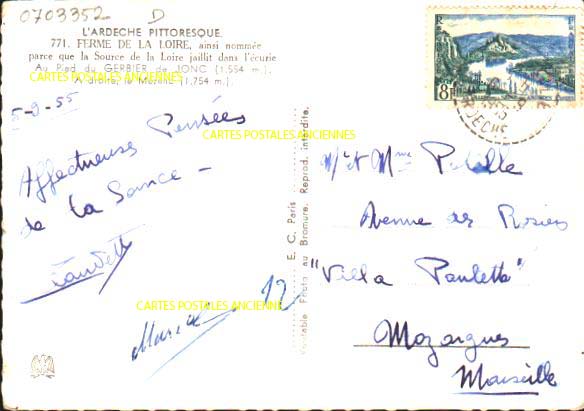 0703352 D
L'ARDECHE PITTORESQUE
771. FERME DE LA LOIRE, ainsi nommée
parce que la Source de la Loire jaillit dans l'écurie
Au Pied du GERBIER de JONC (1.554 m.)
A droite, le Mézenc (1.754 m.)
CARTES POSTALES ANCIENNES
5-9-55
Affectueuses Pensées
de la Source -
CARTES POSTALES ANCIENNES
CARTES POSTALES ANCIENNES
12
E. C. Paris
Véritable Photo au Bromure, Reprod. interdite.
R F
8F
ARDECHE
Mr et Mme
Avenue des Rosiers
"Villa Pauletta"
Mazargues
Marseille